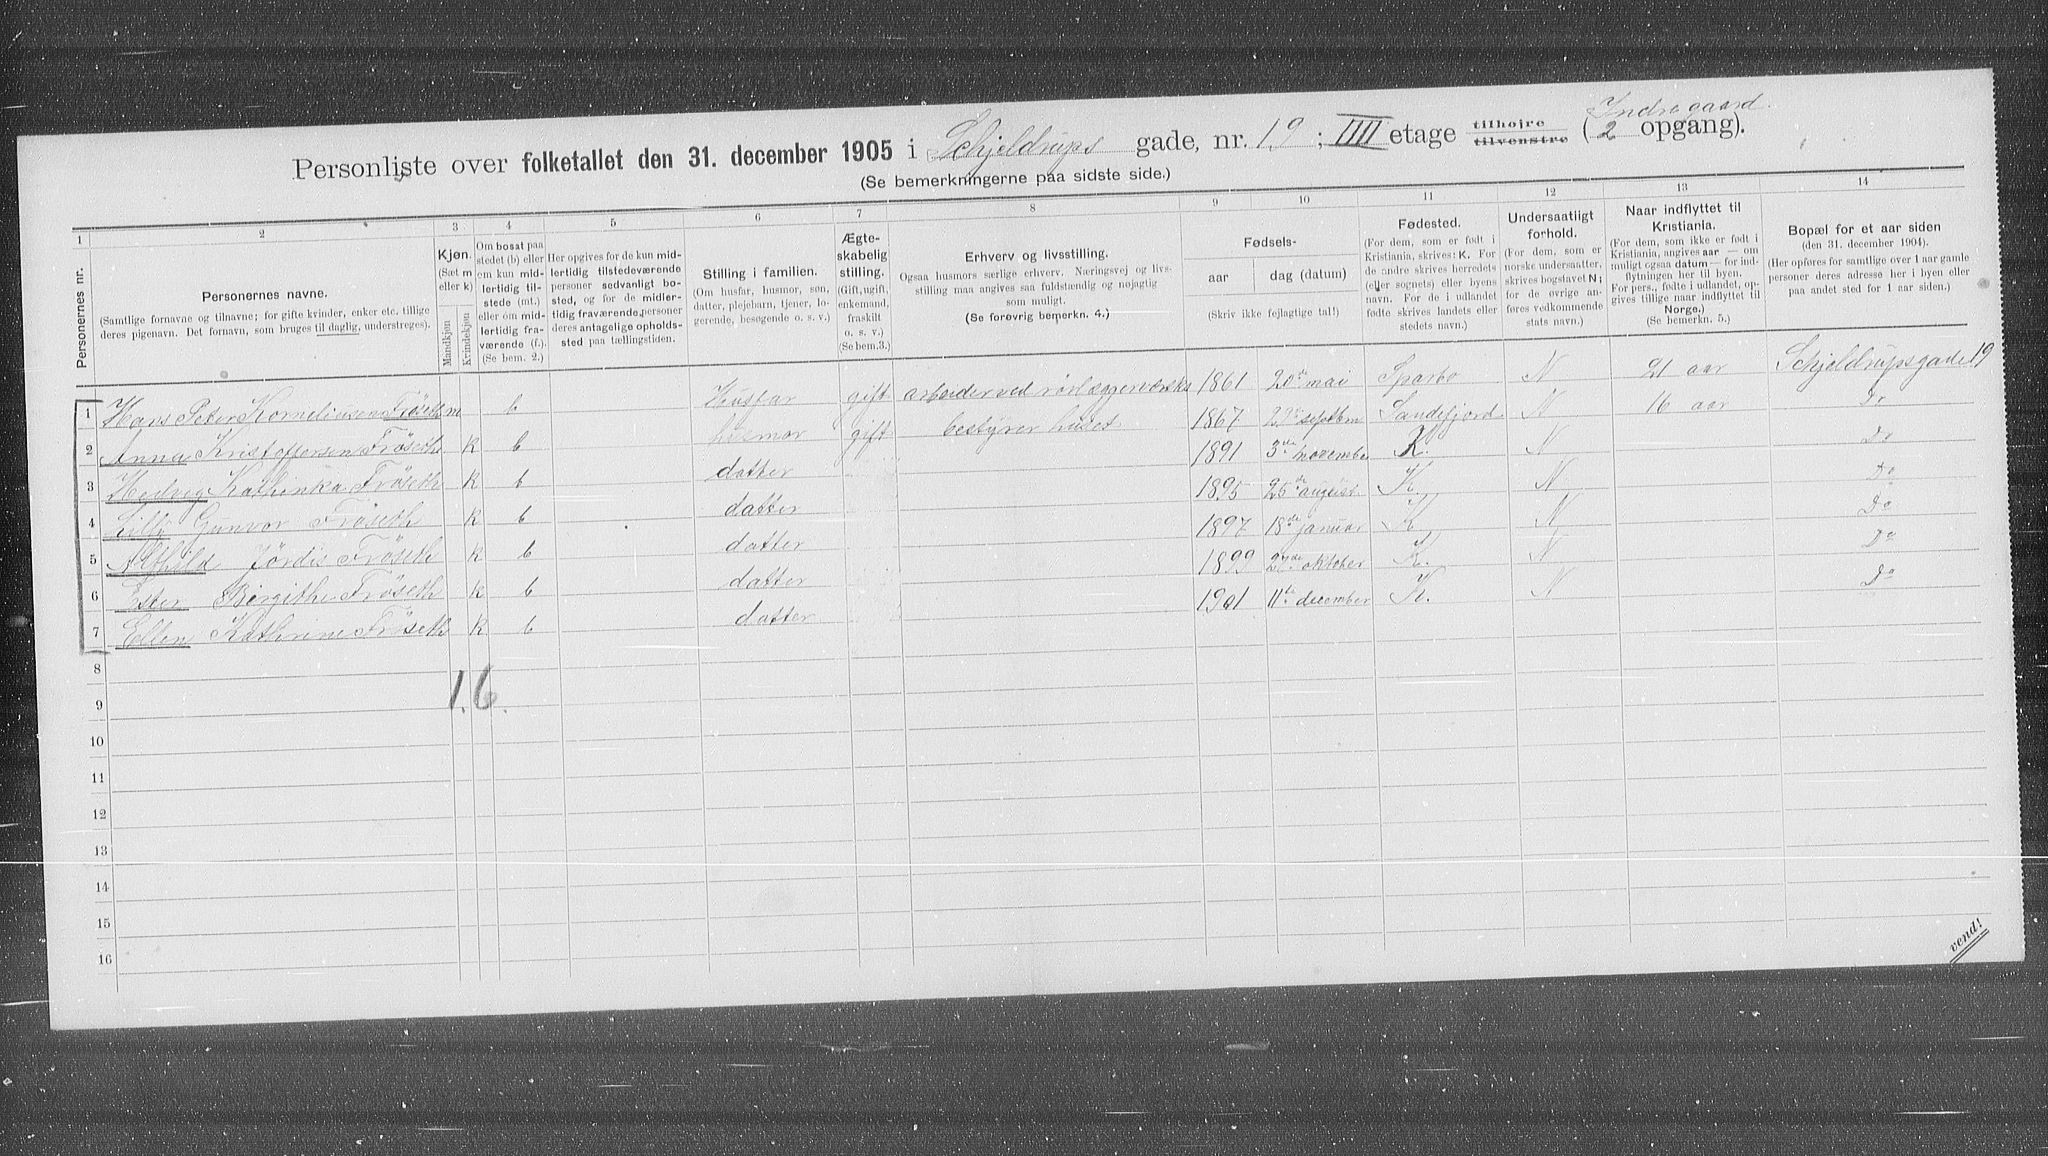 Indregaard.
Personliste over folketallet den 31. december 1905 i Schjeldrups gade, nr. 19; IIII etage tilhøjre tilvenstre (2 opgang).
(Se bemerkningerne paa sidste side.)
1 2 3 4 5 6 7 8 9 10 11 12 13 14
Personernes nr.
Personernes navne.
(Samtlige fornavne og tilnavne; for gifte kvinder, enker etc. tillige deres pigenavn. Det fornavn, som bruges til daglig, understreges).
Kjøn.
(Sæt m eller k)
Mandkjøn
Kvindekjøn
Om bosat paa stedet (b) eller om kun midlertidig tilstede (mt.) eller om midlertidig fraværende (f.).
(Se bem. 2.)
Her opgives for de kun midlertidig tilstedeværende personer sedvanlig bosted, og for de midlertidig fraværende personer deres antagelige opholdssted paa tællingstiden.
Stilling i familien.
(Om husfar, husmor, søn, datter, plejebarn, tjener, logerende, besøgende o. s. v.)
Ægteskabelig stilling.
(Gift, ugift, enkemand, fraskilt o. s. v.)
(Se bem. 3.)
Erhverv og livsstilling.
Ogsaa husmors særlige erhverv. Næringsvej og livsstilling maa angives saa fuldstændig og nøjagtig som muligt.
(Se forøvrig bemerkn. 4.)
Fødsels-
aar
dag (datum)
(Skriv ikke fejlagtige tal!)
Fødested.
(For dem, som er født i Kristiania, skrives: K. For de andre skrives herredets (eller sognets) eller byens navn. For de i udlandet fødte skrives landets eller stedets navn.)
Undersaatligt forhold.
(For dem, som er norske undersaatter, skrives bogstavet N; for de øvrige anføres vedkommende stats navn.)
Naar indflyttet til Kristiania.
(For dem, som ikke er født i Kristiania, angives aar — om muligt ogsaa datum — for indflytningen her til byen. For pers., fødte i udlandet, opgives tillige naar indflyttet til Norge.)
(Se bemerkn. 5.)
Bopæl for et aar siden
(den 31. december 1904).
(Her opføres for samtlige over 1 aar gamle personer deres adresse her i byen eller paa andet sted for 1 aar siden.)
1 Hans Peter Korneliusen Fröseth m b husfar gift arbeider ved rörlæggerverksted 1861 20de mai Sparbo N 21 aar Schjeldrupsgade 19
2 Anna Kristoffersen Fröseth K b husmor gift bestyrer huset 1867 septbm Sandefjord N 16 aar Do
3 Hedvig Kathinka Fröseth K b datter 1891 3de november K. N Do
4 Lilly Gunvor Fröseth K b datter 1895 25de august K. N Do
5 Alfhild Jördis Fröseth K b datter 1897 18de januar K N Do
6 Ester Birgithe Fröseth K b datter 1899 oktober K. N Do
7 Ellen Kathrine Fröseth K b datter 1901 11te december K. N Do
8
1. 6.
9
10
11
12
13
14
15
16
vend!